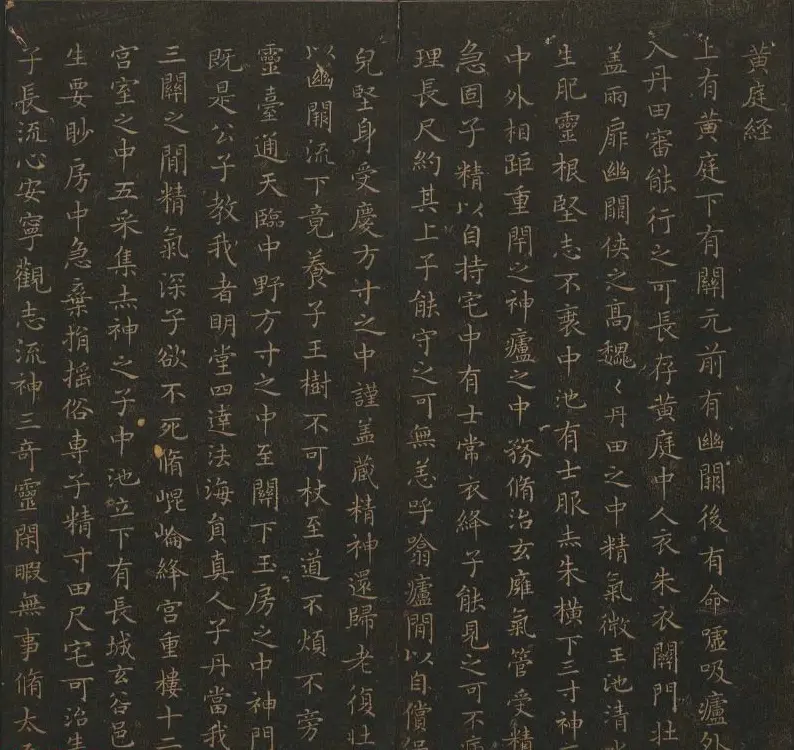 黄庭経
上有黄庭下有關元前有幽闕後有命噓吸廬外
入丹田審能行之可長存黄庭中人衣朱衣關門壮
盖兩扉幽闕侠之髙魏〻丹田之中精氣微玉池清
生肥靈根堅志不衰中池有士服赤朱横下三寸神
中外相距重閇之神廬之中務脩治玄廱氣管受精
急固子精以自持宅中有士常衣絳子能見之可不病
理長尺約其上子能守之可無恙呼翁廬間以自償
皃堅身受慶方寸之中謹盖藏精神還歸老復壮
以幽闕流下竟養子玉樹不可杖至道不煩不旁
靈臺通天臨中野方寸之中至關下玉房之中神門
既是公子教我者明堂四達法海負真人子丹當我
三關之間精氣深子欲不死脩崐崘絳宫重樓十二
宫室之中五采集赤神之子中池立下有長城玄谷邑
生要眇房中急棄捐揺俗専子精寸田尺宅可治生
子長流心安寧觀志流神三奇靈閑暇無事脩太